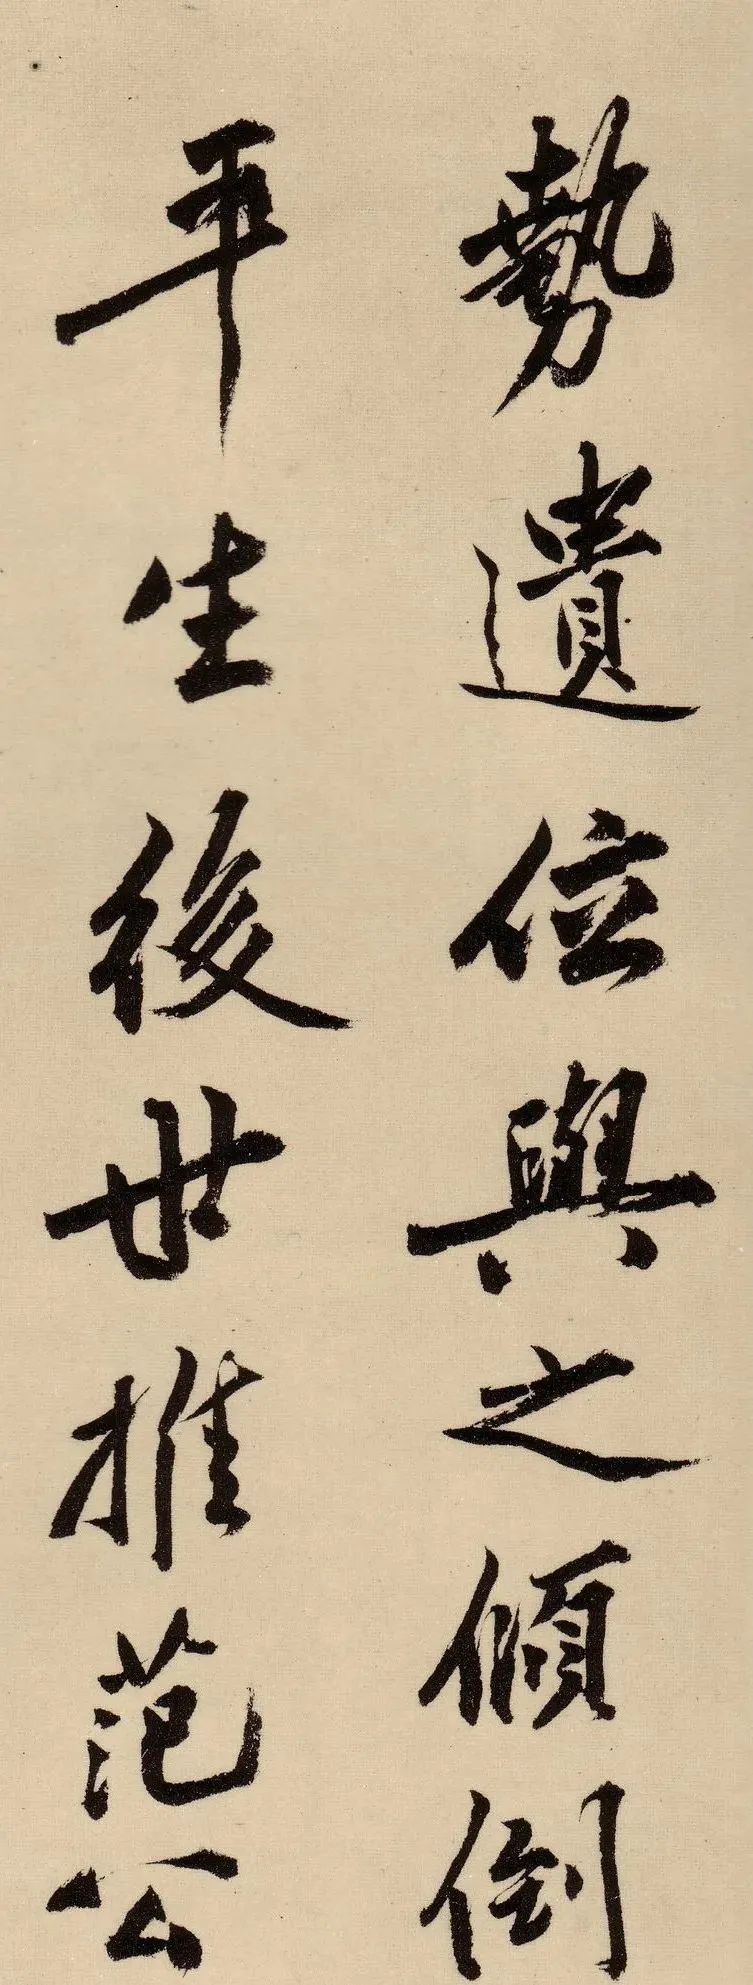 勢遺位與之傾倒
平生後世推范公